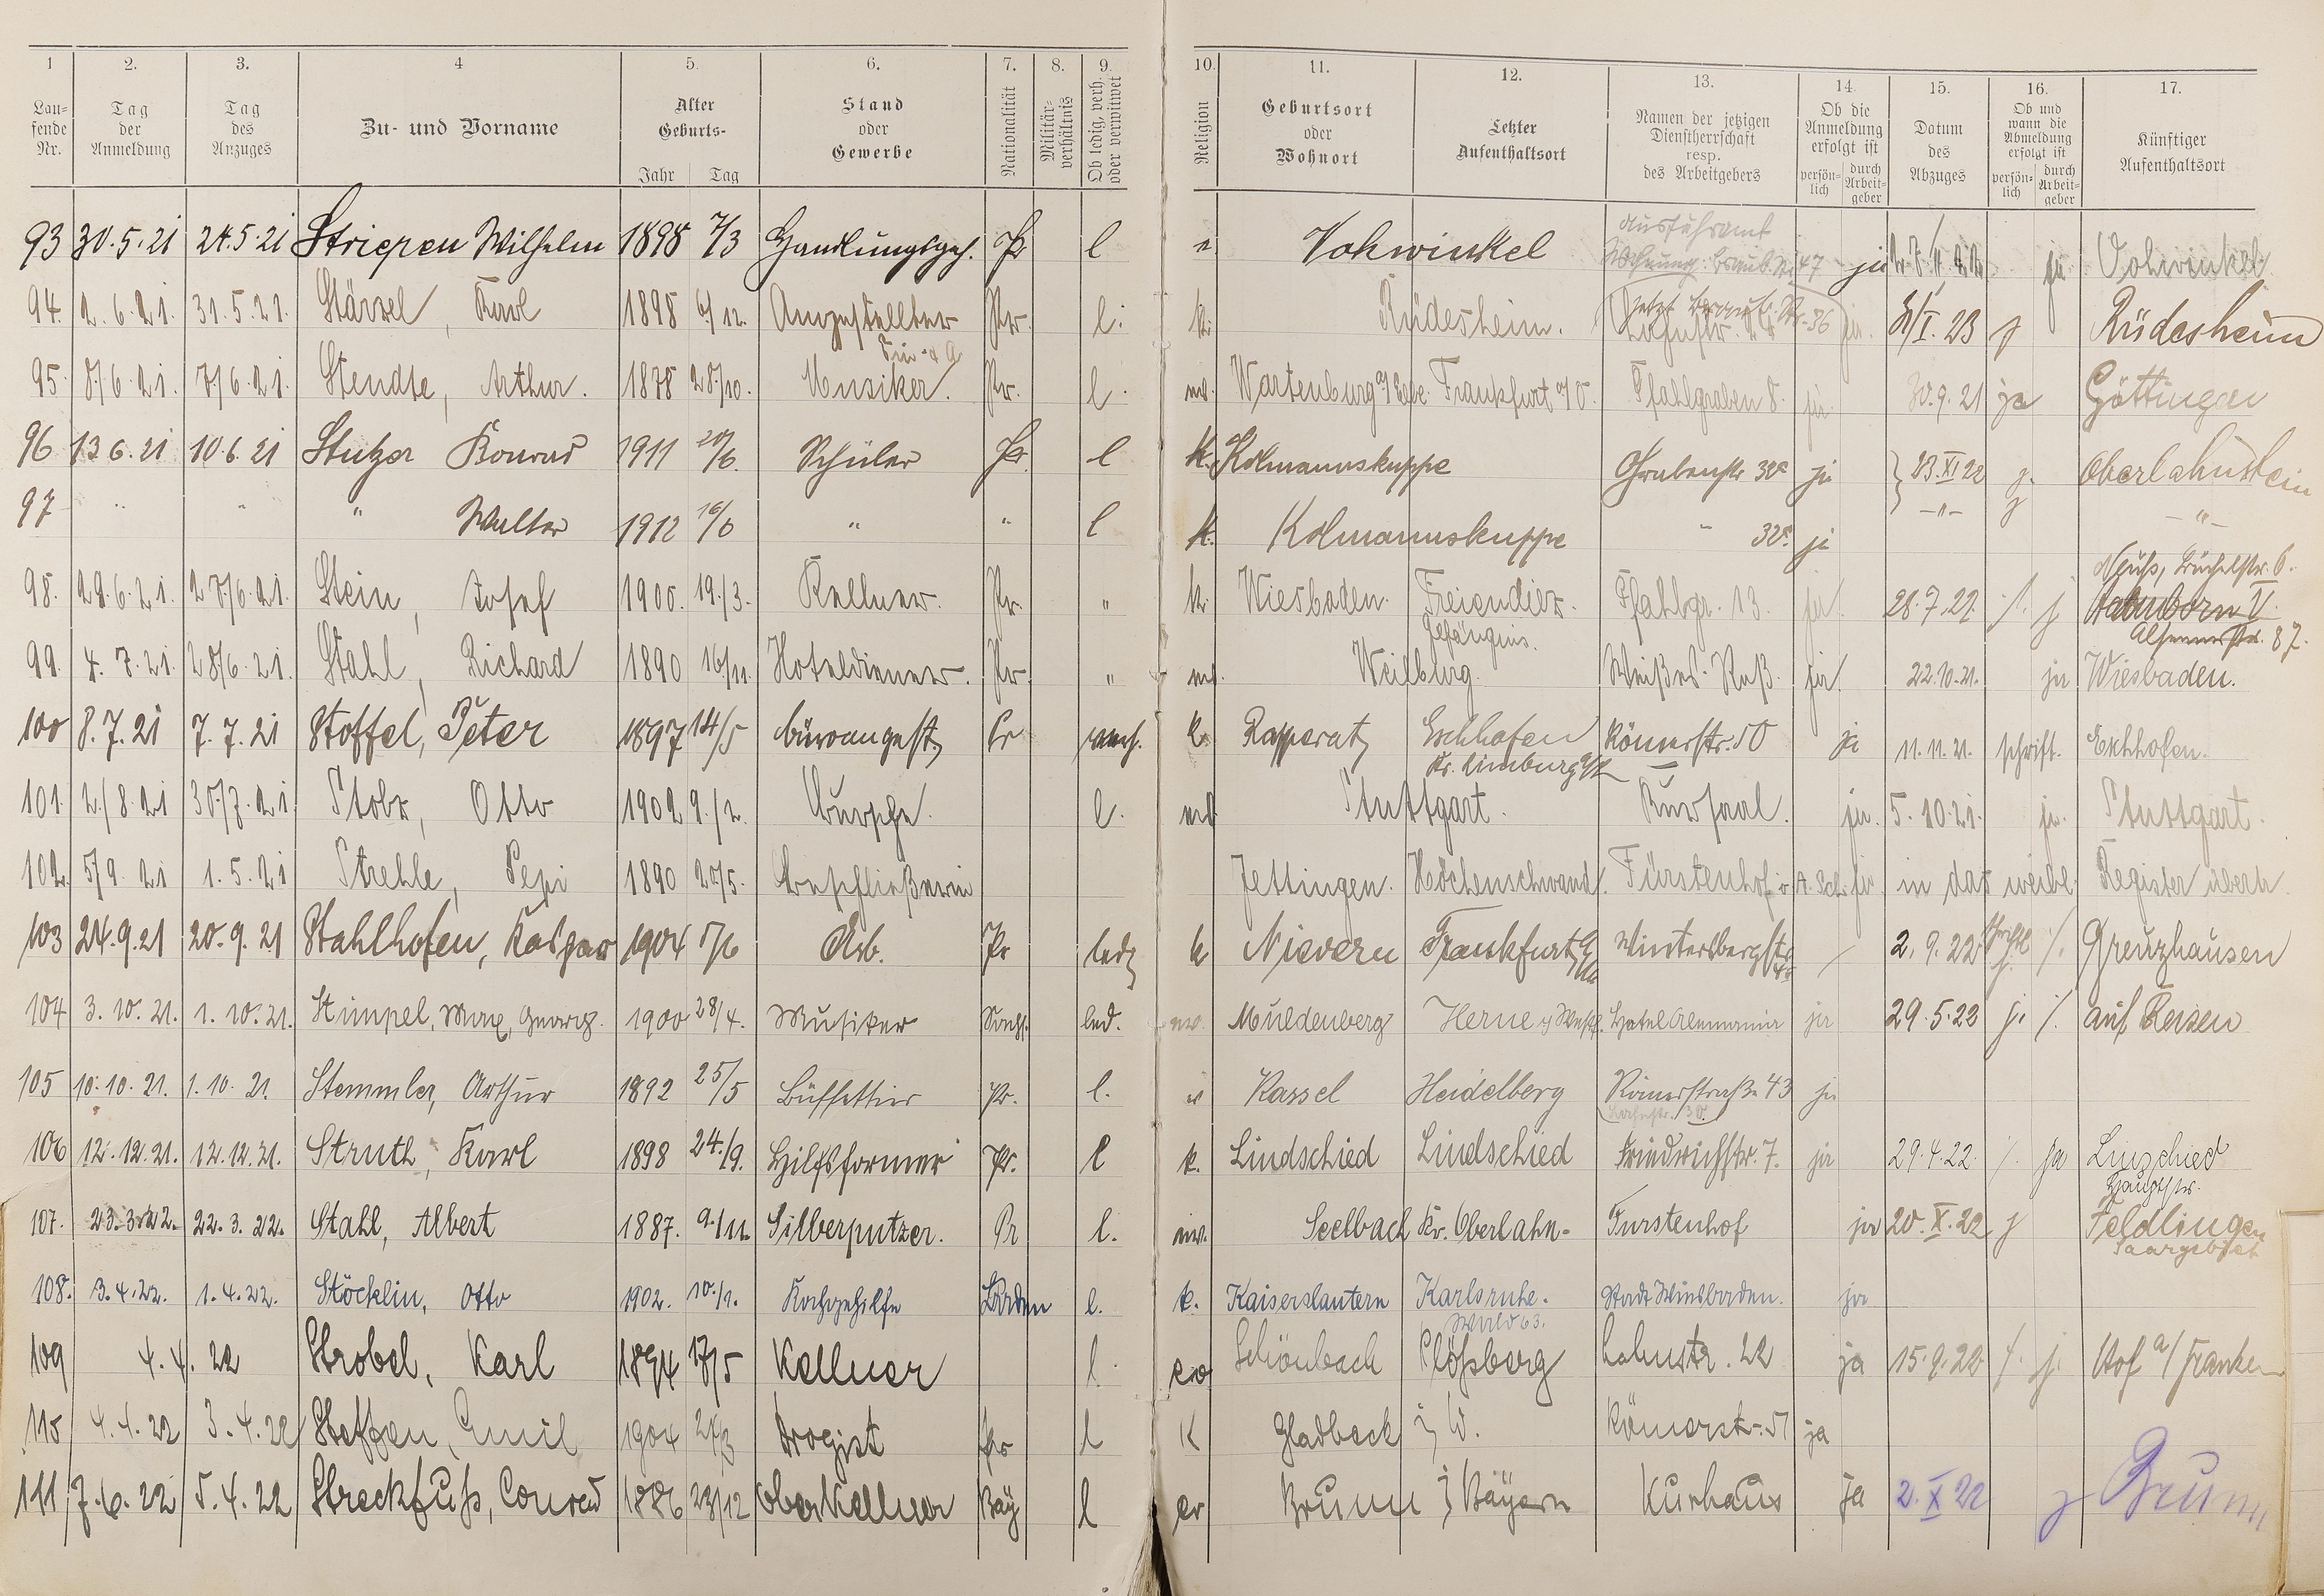 1 2. 3. 4 5. 6. 7. 8. 9. 10. 11. 12. 13. 14. 15. 16. 17.
Lau-
fende
Nr.
Tag
der
Anmeldung
Tag
des
Anzuges
Zu- und Vorname
Alter
Geburts-
Jahr Tag
Stand
oder
Gewerbe
Nationalität
Militär-
verhältnis
Ob ledig, verh.
oder verwitwet
Religion
Geburtsort
oder
Wohnort
Letzter
Aufenthaltsort
Namen der jetzigen
Dienstherrschaft
resp.
des Arbeitgebers
Ob die
Anmeldung
erfolgt ist
persön-
lich
durch
Arbeit-
geber
Datum
des
Abzuges
Ob und
wann die
Abmeldung
erfolgt ist
persön-
lich
durch
Arbeit-
geber
Künftiger
Aufenthaltsort
93 30.5.21 24.5.21 Striepen Wilhelm 1898 7/3 Handlungsgeh. Pr l Vohwinkel Ausfuhramt ja ja Vohwinkel
94. 2.6.21. 31.5.21. Stärzel, Karl 1898 6/12. Angestellter Pr. l. k. Rüdesheim. 36 ja. 31/I.23 j Rüdesheim
95. 8/6.21. 7/6.21. Stendte, Arthur. 1878 28/10. Musiker. Pr. l. ev. Wartenburg a/Elbe. Frankfurt a/O. Pfahlgraben 8. ja. 30.9.21 ja Göttingen
96 13 6.21 10.6.21 Stutzer Konrad 1911 20/6. Schüler Pr. l k. Kolmannskuppe Grabenstr 32a ja 23.XI 22 j. Oberlahnstein
97 " " " Walter 1912 16/6 " " l k. Kolmannskuppe " 32a. ja -"- j -"-
98. 29.6.21. 27/6.21. Stein, Josef 1900. 19./3. Kellner. Pr. " k. Wiesbaden. Freiendiez. Gefängnis. Pfahlgr. 13. ja 28.7.21. /. j Neuß, Büchelstr. 6.
99. 4.7.21. 28/6.21. Stahl, Richard 1890 16/11. Hoteldiener. Pr. " ev. Weilburg. Weißes Roß. ja 22.10.21. ja Wiesbaden.
100 8.7.21 7.7.21 Stoffel, Peter 1897 14/5 büroangest. Pr verh. k. Rapperath Eschhofen Kr. Limburg a/L Römerstr. 50 ja 11.11.21. schrift. Eschhofen.
101. 2./8.21 30/7.21 Stobz, Otto 1902 9./2. Bursche. l. ev. Stuttgart. Kursaal. ja. 5.10.21. ja. Stuttgart.
102. 5/9.21 1.5.21 Strehle, Pepi 1890 20/5. Jettingen. Höchenschwand. Fürstenhof ja in das weibl. Register übertr.
103 24.9.21 20.9.21 Stahlhofen, Kaspar 1904 5/6 Arb. Pr ledg k Nievern Frankfurt a/M Wintersbergstr / 2.9.22 /. Grenzhausen
104 3.10.21. 1.10.21. Stimpel, Max, Georg. 1900 28/4. Musiker Sachs. led. ev. Muldenberg Herne i/Westf. Hotel Alemannia ja 29.5.22 j. /. auf Reisen
105 10.10.21. 1.10.21. Stemmler, Arthur 1892 25/5 Büffettier Pr. l. Kassel Heidelberg Römerstraße 43 ja
106 12.12.21. 12.12.21. Struth, Karl 1898 24./9. Hilfsformer Pr. l k. Lindschied Lindschied Friedrichstr. 7. ja 29.4.22. /. ja Linzchied
107. 23.3.22. 22.3.22. Stahl, Albert 1887. 9./11. Silberputzer. Pr l. ev. Seelbach Kr. Oberlahn- Furstenhof ja 20.X.22 j Feldlingen Saargebiet
108. 3.4.22. 1.4.22. Stöcklin, Otto 1902. 10./1. Kochgehilfe Baden l. k. Kaiserslautern Karlsruhe. Stadt Wiesbaden. ja
109 4.4.22 Strobel, Karl 1894 17/5 Kellner l. ev Schönbach Plößberg Lahnstr. 22 ja 15.9.22 /. j. Hof a/ Franken
110 4.4.22 3.4.22 Steffen, Emil 1904 Drogist Pr l K Gladbeck i W. Römerstr. 51 ja
111 7.6.22 5.4.22 Streckfuß, Conrad 1886 23/12 Oberkellner Bay l ev Brunn i Bayern Kurhaus Ja 2.X 22 j Brunn